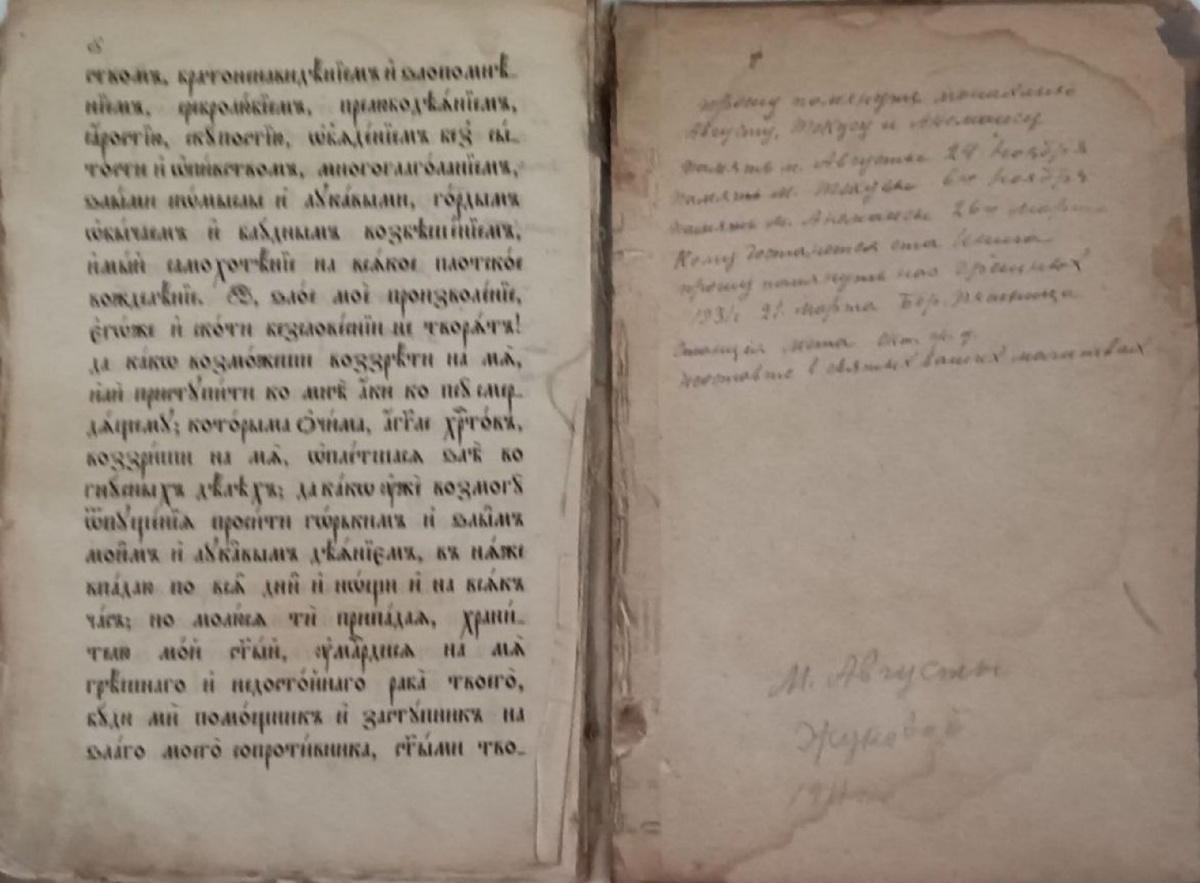 ством, братоненавидѣнїемъ и҆ ѕлопомнѣ-
нїемъ, сребролю́бїемъ, прелюбодѣѧ́нїемъ,
ꙗ҆́ростїю, скꙋ́постїю, ѡ҆б̾ѧде́нїемъ без̾ сы́-
тости и҆ ѡ҆пи́вствомъ, многоглаго́ланїемъ,
ѕлы́ми мы́сльми и҆ лꙋка́выми, го́рдымъ
ѡ҆бы́чаемъ и҆ блꙋ́днымъ возбѣше́нїемъ,
и҆мы́й самохотѣ́нїе на всѧ́кое плотско́е
вожделѣ́нїе. Ѽ, ѕло́е моѐ произволе́нїе,
є҆гѡ́же и҆ ско́ти безслове́снїи не творѧ́тъ!
да ка́кѡ возмо́жеши воззрѣ́ти на мѧ̀,
и҆лѝ пристꙋпи́ти ко мнѣ̀ а҆́ки ко псꙋ̀ смер-
дѧ́щемꙋ; кото́рыма ѻ҆чи́ма, а҆́гг҃ле хрⷭ҇то́въ,
воззри́ши на мѧ̀, ѡ҆пле́тшасѧ ѕлѣ̀ во
гнꙋ́сныхъ дѣ́лѣхъ; да ка́кѡ ᲂу҆жѐ возмогꙋ̀
ѿпꙋще́нїѧ проси́ти гѡ́рькимъ и҆ ѕлы̑мъ
мои̑мъ и҆ лꙋка̑вымъ дѣѧ́нїємъ, въ нѧ́же
впа́даю по всѧ̑ дни̑ и҆ нѡ́щи и҆ на всѧ́къ
ча́съ; но молю́сѧ тѝ припа́даѧ, храни́-
телю мо́й ст҃ы́й, ᲂу҆млⷭ҇рдисѧ на мѧ̀
грѣ́шнаго и҆ недосто́йнаго раба̀ твоего̀,
бꙋ́ди мѝ помо́щникъ и҆ застꙋ́пникъ на
ѕла́го моего̀ сопроти́вника, ст҃ы́ми тво-
прошу помянуть монахинь
Августу,
память м. Августы 24 Ноября
память м. 6го Ноября
память м. 26го Марта
Кому достанется эта книга
прошу помянуть нас грешных
1931 г 21 марта
Станция Окт. ж. д.
неоставте в святых ваших молитвах
М. Августы
Жуковой